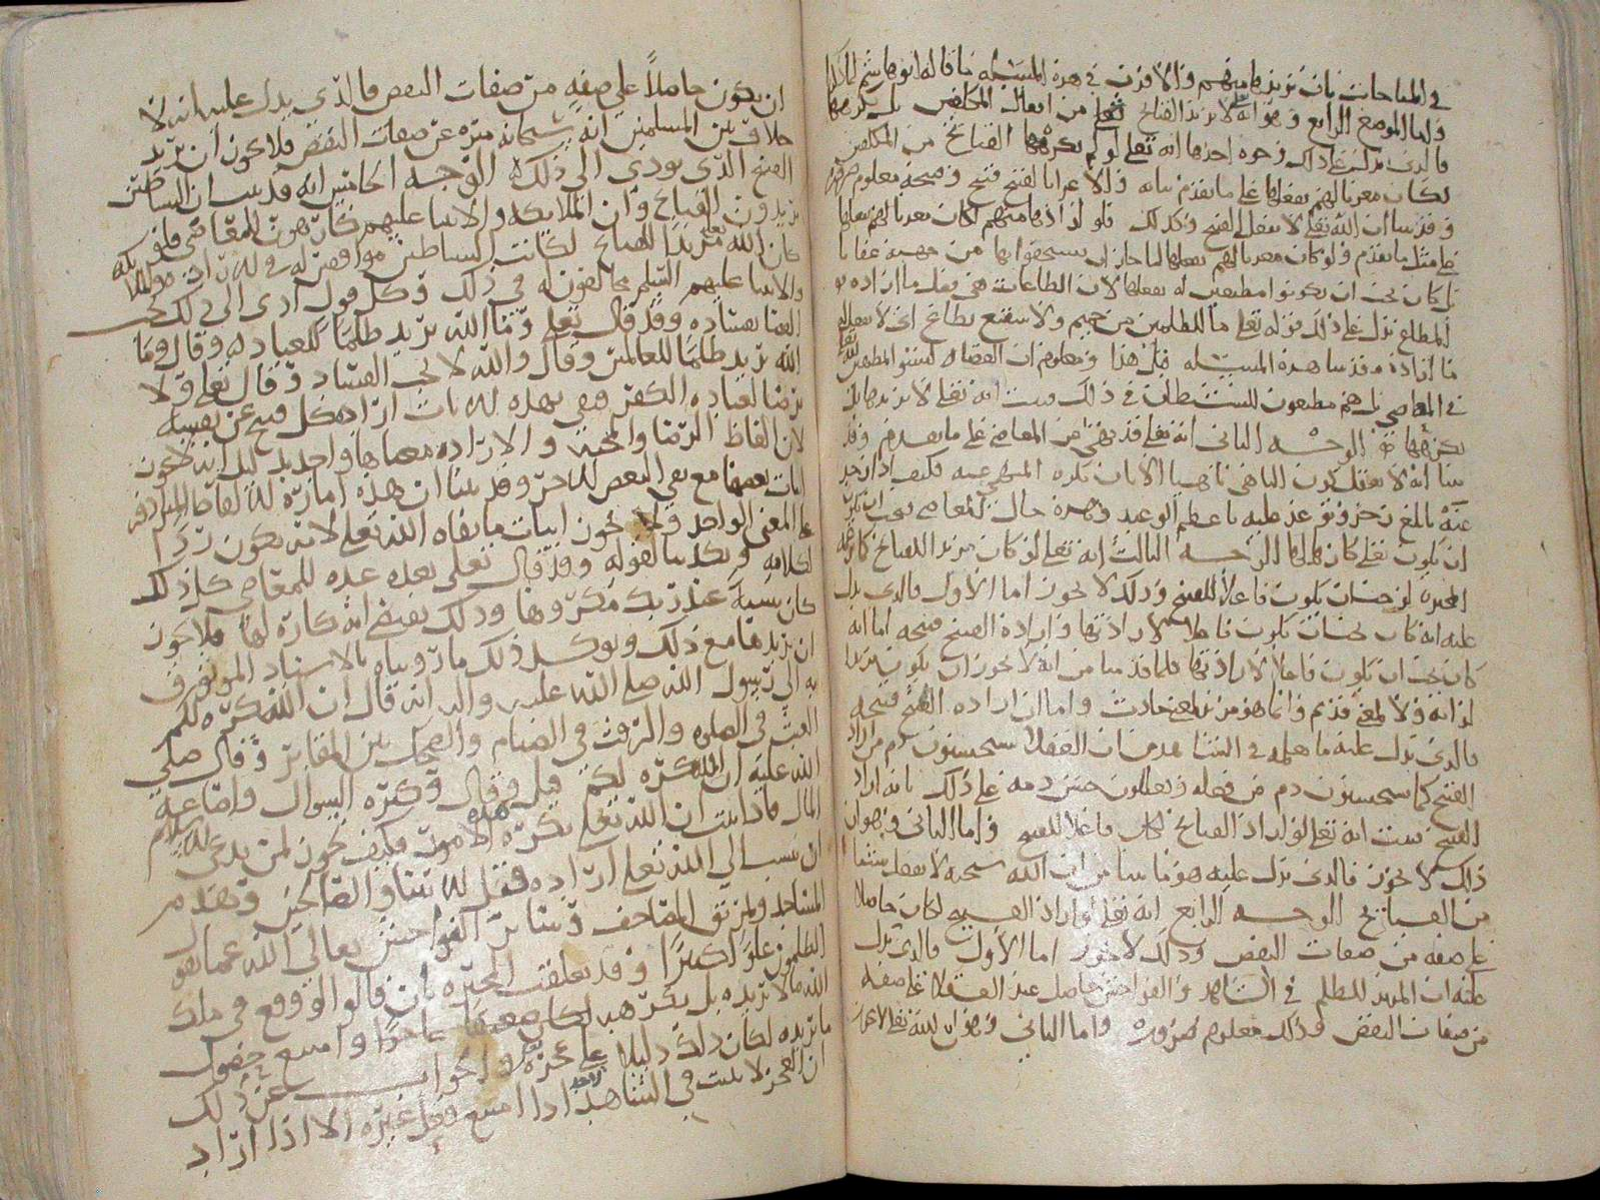 في المباحات بان يريدها منهم والا فرق في هذه المسئلة ما قاله ابو هاشم
واما الموضع الرابع وهو انه لا يريد القبائح تعلى من افعال المكلفين بل يكرهها
فالذي يدل على ذلك وجوه احدها انه تعلى لو لم يكرهها القبائح من المكلفين
لكان معريا لهم بفعلها على ما تقدم بيانه والاغرا بالقبيح قبيح وقبحه معلوم
وقد بينا ان الله تعلى لا يفعل القبيح وكذلك فلو ارادها منهم لكان معريا لهم بفعلها
على مثل ما تقدم ولو كان معريا لهم بفعلها لما جاز ان يستحقوا بها من جهته عقابا
بل كان يجب ان يكونوا مطيعين له بفعلها لان الطاعات هي فعل ما اراده
المطاع يدل على ذلك قوله تعلى ما للظالمين من حميم ولا شفيع يطاع اي لا يفعل
ما اراده وقد بينا هذه المسئله قبل هذا ومعلوم ان العصاه ليسوا المطيعين لله
في المعاصي بل هم مطيعون للشيطان في ذلك فثبت انه تعلى لا يريدها بل
يكرهها الوجه الثاني انه تعلى قد نهى عن المعاصي على ما تقدم وقد
بينا انه لا يعقل كون الناهي ناهيا الا بان يكره المنهي عنه فكيف اذا زجر
عنه بابلغ زجر وتوعد عليه باعظم الوعيد وهذه حال المعاصي فيجب
ان يكون تعلى كارها لها الوجه الثالث انه تعلى لو كان مريدا للقبائح كما زعمه
المجبره لوجب ان يكون فاعلا للقبيح وذلك لا يجوز اما الاول فالذي يدل
عليه انه كان يجب ان يكون فاعلا لارادتها وارادة القبيح قبيحه اما انه
كان يجب ان يكون فاعلا لارادتها فلما قدمنا من انه لا يجوز ان يكون مريدا
لذاته ولا لمعنى قديم وانما هو مريد بمعنى حادث واما ان اراده القبيح قبيحه
فالذي يدل عليه ما نعلمه في الشاهد من ان العقلا يستحسنون ذم من اراد
القبيح كما يستحسنون ذم من فعله ويعللون حسن ذمه على ذلك بانه اراد
القبيح فثبت انه تعلى لو اراد القبائح لكان فاعلا للقبيح واما الثاني وهو ان
ذلك لا يجوز فالذي يدل عليه هو ما بينا من ان الله سبحنه لا يفعل شيئا
من القبائح الوجه الرابع انه تعلى لو اراد القبيح لكان حاصلا
على صفه من صفات النقص وذلك لا يجوز اما الاول فالذي يدل
عليه ان المريد للظلم في الشاهد والفواحش حاصل عند العقلا على صفه
من صفات النقص وذلك معلوم ضروره واما الثاني وهو ان الله تعلى لا يجوز
ان يكون حاصلا على صفه من صفات النقص فالذي يدل عليه انه لا
خلاف بين المسلمين انه سبحانه منزه عن صفات النقص فلا يجوز ان يريد
القبيح الذي يودي الى ذلك الوجه الخامس انه قد ثبت ان الشياطين
يريدون القبائح وان الملايكه والانبيا عليهم كارهون للمعاصي فلو
كان الله تعلى مريدا للقبائح لكانت الشياطين موافقين له في الاراده
والانبيا عليهم السلم مخالفون له في ذلك وكل قول ادى الى ذلك يجب
القضا بفساده وقد قال تعلى وما الله يريد ظلما للعباد وقال وما
الله يريد ظلما للعالمين وقال والله لا يحب الفساد وقال تعلى ولا
يرضا لعباده الكفر ففي هذه الايات اراده كل قبيح عن نفسه
لان الفاظ الرضا والمحبه والاراده معناها واحد بدليل انه لا يجوز
اثبات بعضها مع نفي البعض الاخر وقد بينا ان هذه امارة الالفاظ المترادفه
على المعنى الواحد ولا يجوز اثبات ما نفاه الله تعلى لانه يكون ردا
لكلامه وتكذيبا لقوله وقد قال تعلى بعد عده للمعاصي كل ذلك
كان سيئه عند ربك مكروها وذلك يقتضي انه كاره لها فلا يجوز
ان يريدها مع ذلك ويوكد ذلك ما رويناه بالاسناد الموثوق
به الى رسول الله صلى الله عليه واله انه قال ان الله كره لكم
العبث في الصلوه والرفث في الصيام والضحك بين المقابر وقال صلى
الله عليه ان الله كره لكم قيل وقال وكثره السوال واضاعه
المال فاذا ثبت ان الله تعلى يكره هذه الامور فكيف يجوز لمن يدعي الاسلام
ان ينسب الى الله تعلى اراده قتل الانبيا والصالحين وهدم
المساجد وتمزيق المصاحف وسائر الفواحش تعالى الله عما يقول
الظلمون علوا كبيرا وقد تعلقت المجبره بان قالوا لو وقع في ملك
الله ما لا يريده بل يكرهه لكان ضعيفا عاجزا وامتنع حصول
ما يريده لكان ذلك دليلا على عجزه والجواب عن ذلك
ان العجز لا يثبت في الشاهد اذا امتنع فعل غيره الا اذا اراد